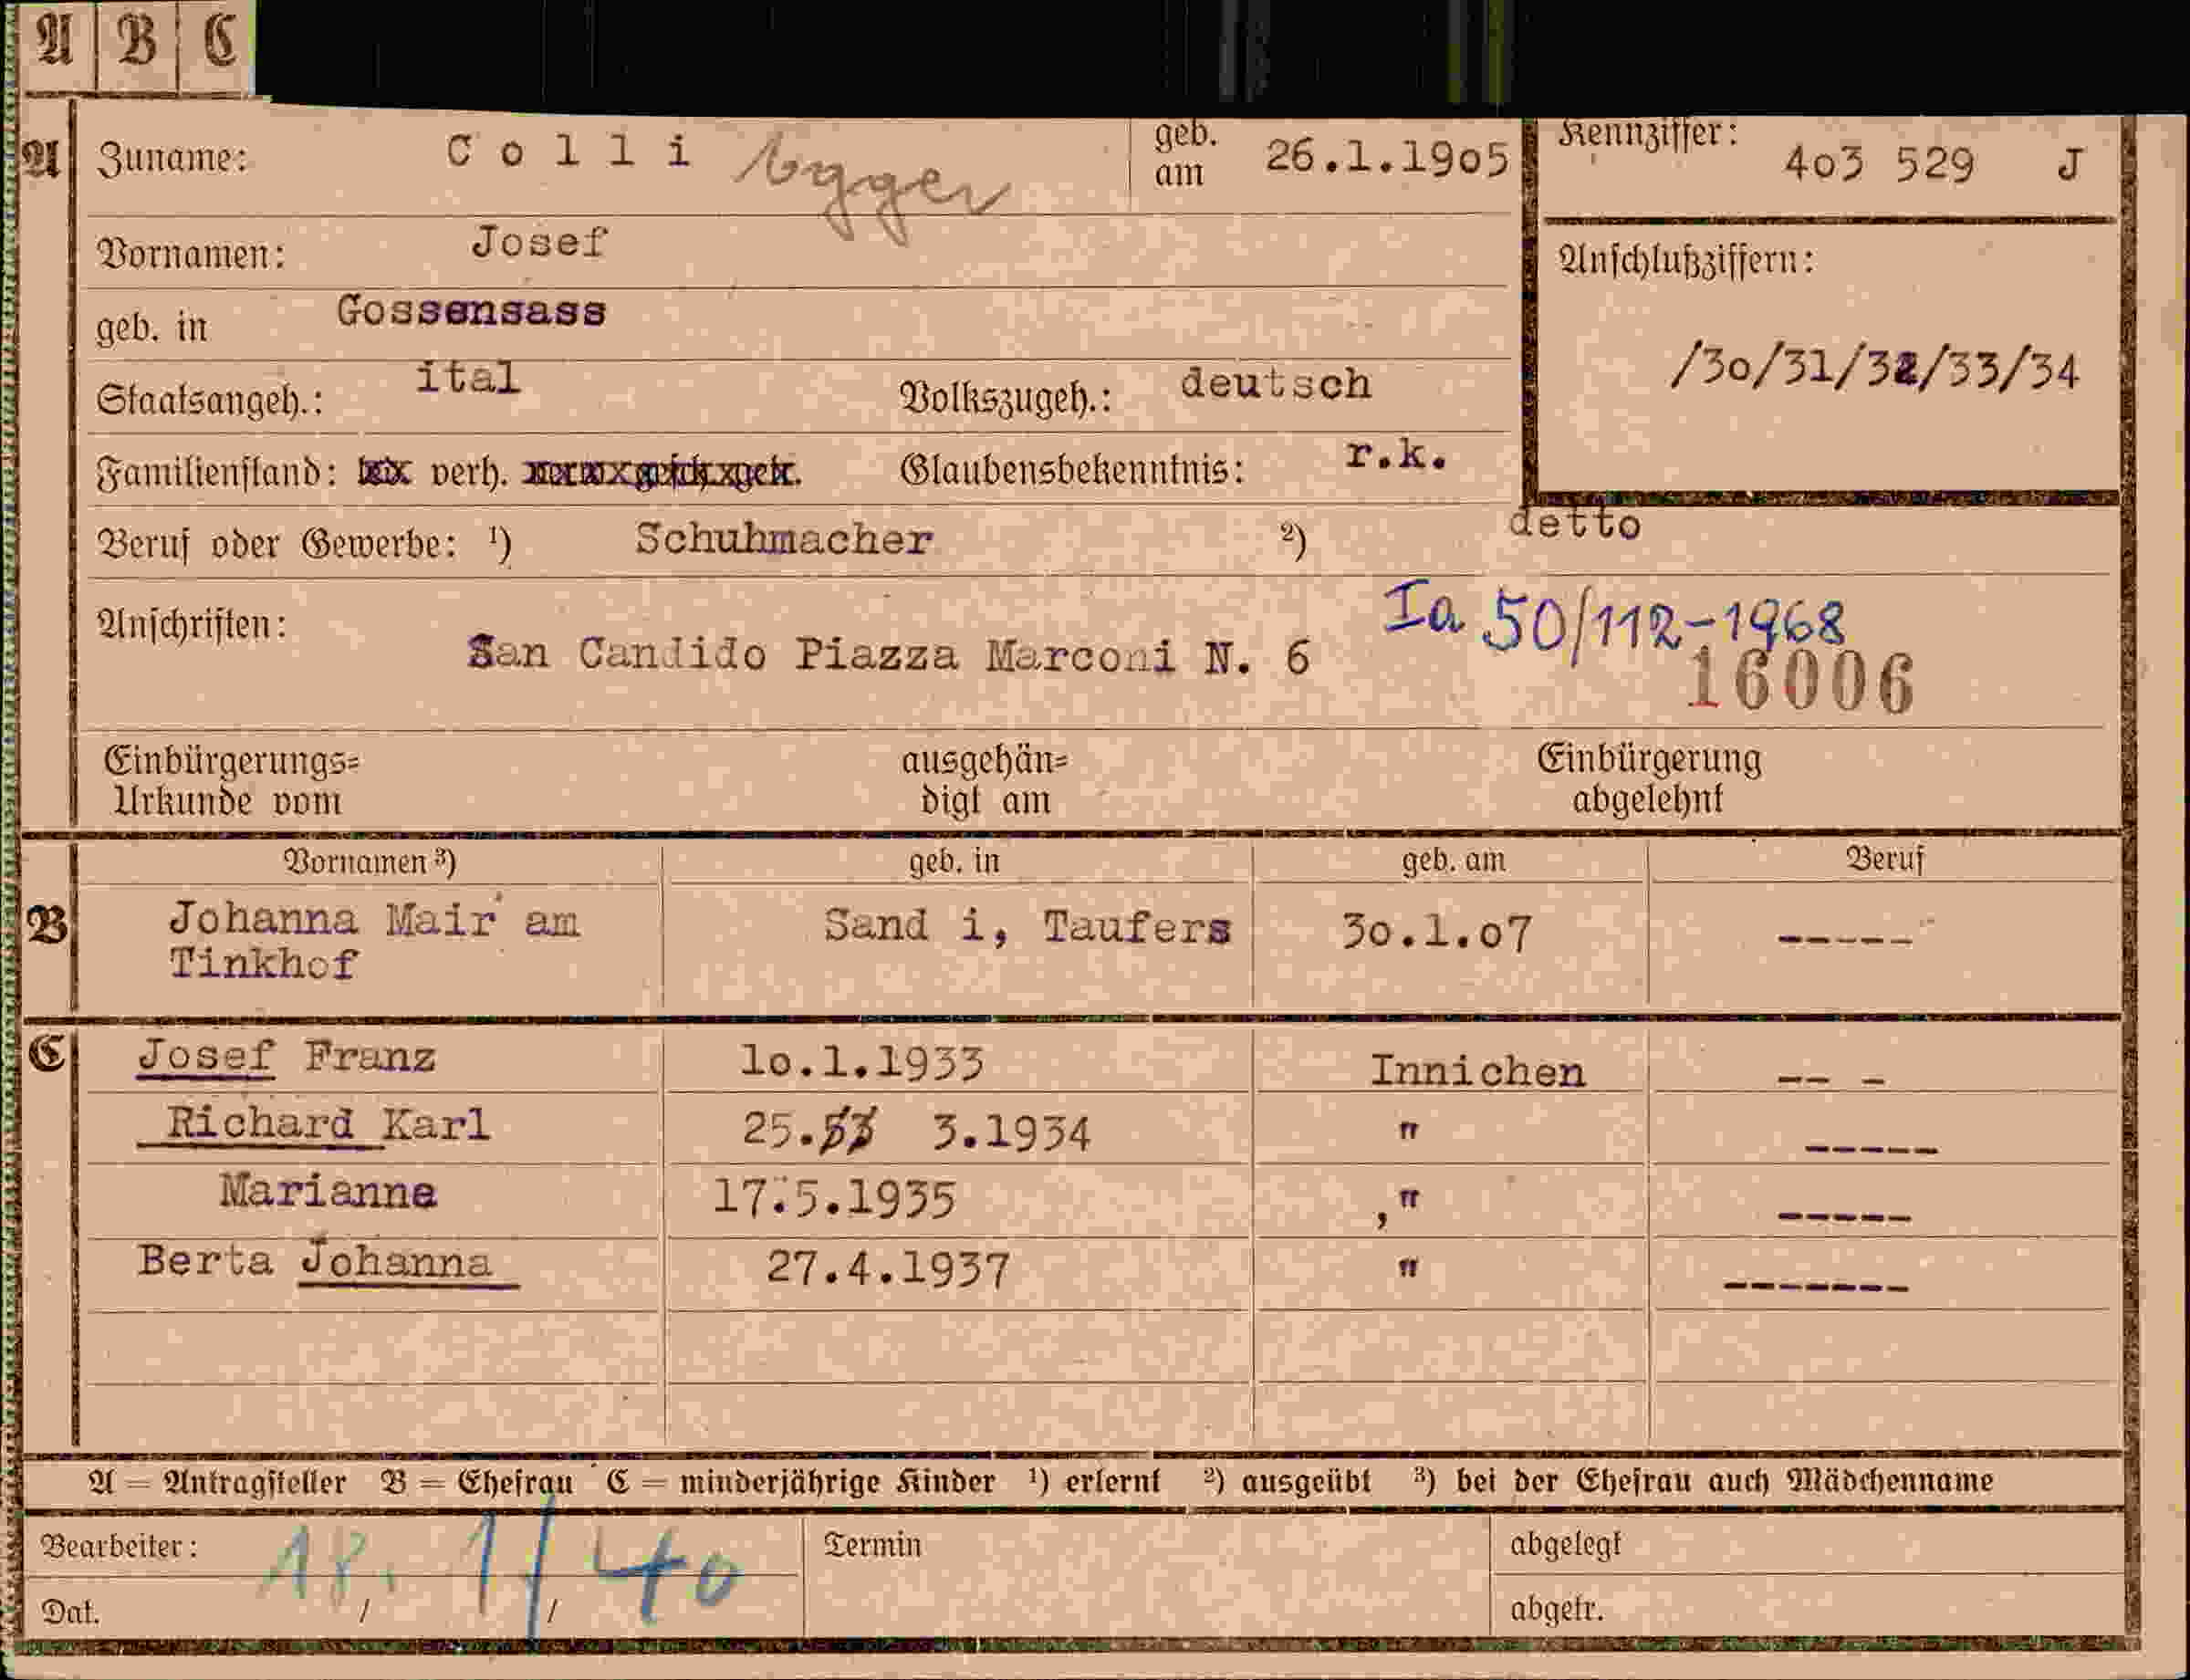 A B C
A Zuname: Colli Egger geb. am 26.1.1905 Kennziffer: 403 529 J
Vornamen: Josef
Anschlußziffern:
geb. in Gossensass
/30/31/32/33/34
Staatsangeh.: ital Volkszugeh.: deutsch
Familienstand: verh. Glaubensbekenntnis: r.k.
Beruf oder Gewerbe: 1) Schuhmacher 2) detto
Anschriften: San Candido Piazza Marconi N. 6
Ia 50/112-1968
16006
Einbürgerungs= ausgehän= Einbürgerung
Urkunde vom digt am abgelehnt
Vornamen 3) geb. in geb. am Beruf
B Johanna Mair am Sand i, Taufers 30.1.07 -----
Tinkhof
C Josef Franz 10.1.1933 Innichen -- -
Richard Karl 25. 3.1934 " -----
Marianne 17.5.1935 ," -----
Berta Johanna 27.4.1937 " -------
A = Antragsteller B = Ehefrau C = minderjährige Kinder 1) erlernt 2) ausgeübt 3) bei der Ehefrau auch Mädchenname
Bearbeiter: Termin abgelegt
18. 1/40
Dat. / / abgetr.